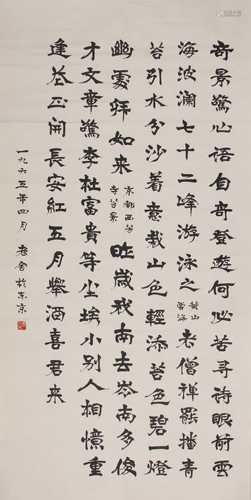 奇景驚心語自奇登遊何必苦尋詩眼前雲
海波瀾七十二峰游泳之黃山雲海老僧禪罷掃青
苔引水分沙着意栽山色輕添苔色碧一燈
幽處如來京都西芳寺苔景昨歲我南去嶺南多俊
才文章驚李杜富貴等塵埃小別人相憶重
逢花正開長安紅五月舉酒喜君來
一九六五年四月 老舍於東京